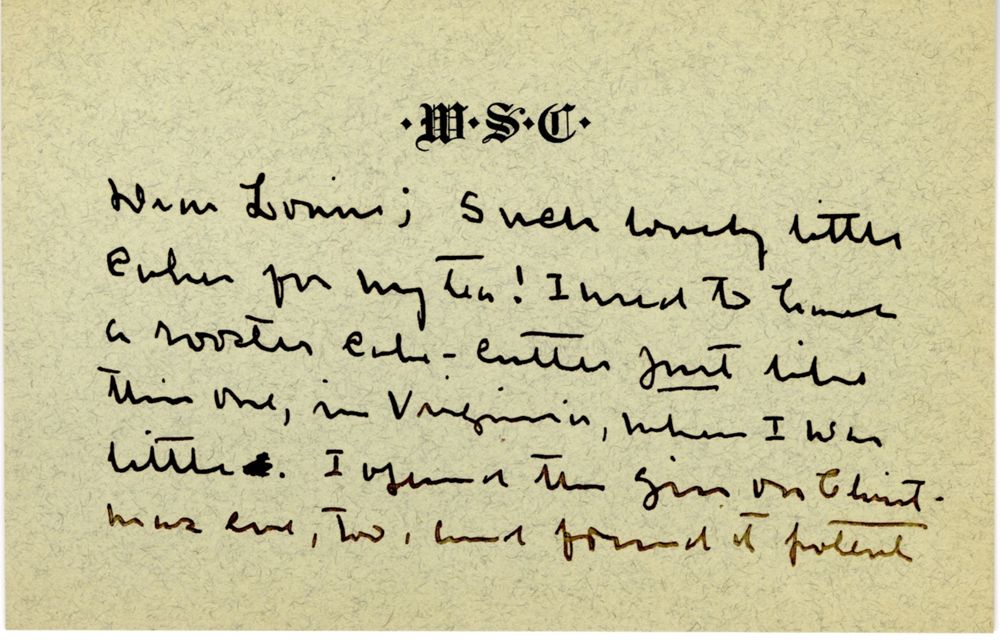 ·W·S·C·
Dear Louise; Such lovely little
cakes for my tea! I used to have
a rooster cake-cutter just like
this one, in Virginia, when I was
little. I opened the gin on Christ-
mas eve, too, and found it potent